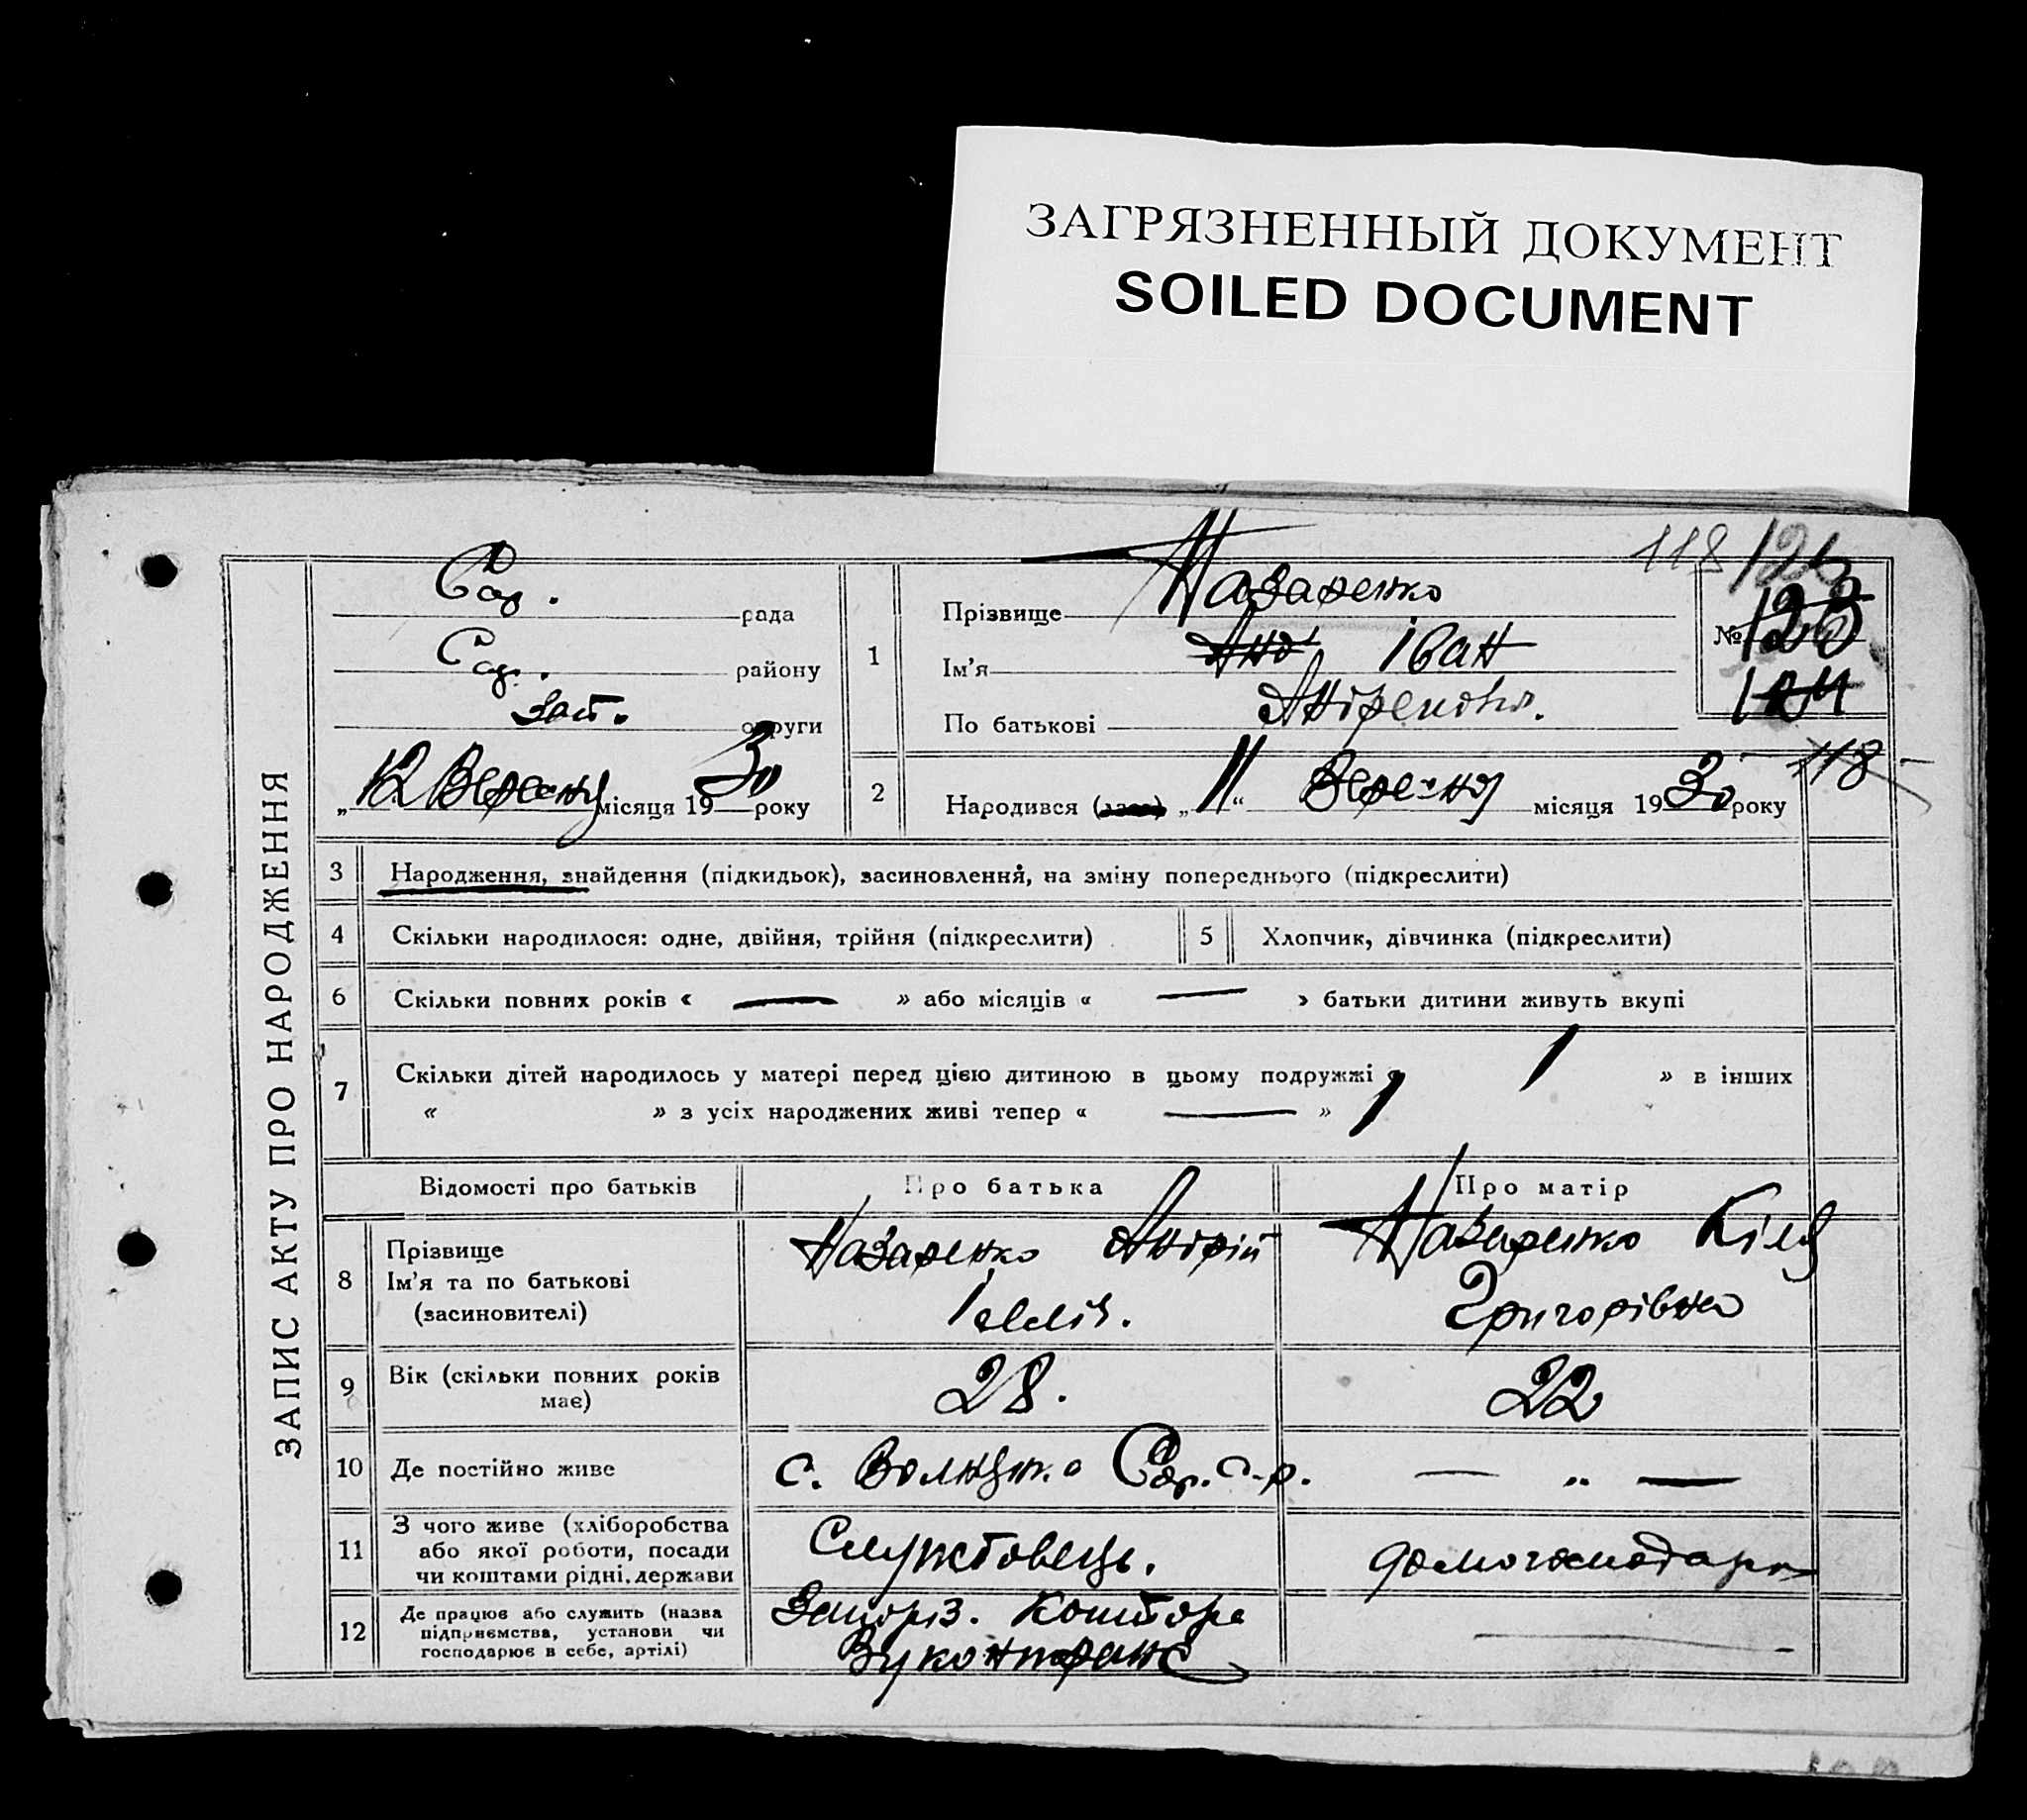 ЗАГРЯЗНЕННЫЙ ДОКУМЕНТ
SOILED DOCUMENT
118
ЗАПИС АКТУ ПРО НАРОДЖЕННЯ
рада
району
Зап. округи
„12 Вересня місяця 1930 року
1
Прізвище Назаренко
Ім'я Анд Іван
По батькові
№ 123
118
2
Народився „11“ Вересня місяця 1930 року
3 Народження, знайдення (підкидьок), засиновлення, на зміну попереднього (підкреслити)
4 Скільки народилося: одне, двійня, трійня (підкреслити)
5 Хлопчик, дівчинка (підкреслити)
6 Скільки повних років « — » або місяців « — » батьки дитини живуть вкупі
7 Скільки дітей народилось у матері перед цією дитиною в цьому подружжі « 1 » в інших
« » з усіх народжених живі тепер « — » 1
Відомості про батьків
Про батька
Про матір
8
Прізвище
Ім'я та по батькові
(засиновителі)
Назаренко Андрій
Назаренко
Григорівна
9
Вік (скільки повних років
має)
28.
22
10 Де постійно живе
с.
— „ —
11
З чого живе (хліборобства
або якої роботи, посади
чи коштами рідні, держави
Службовець.
домогосподарка
12
Де працює або служить (назва
підприємства, установи чи
господарює в себе, артілі)
Запоріз. Контора